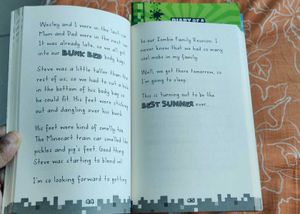 Wesley and I were in the last
Mom and Dad were in the next
It was already late, so we all got
into our BUNK BED body bags.
Steve was a little taller than the
rest of us, so we had to cut a hole
in the bottom of his body bag so
he could fit. His feet were sticking
out and dangling over his bunk.
His feet were kind of smelly too.
The Minecart train car smelled like
pickles and pig's feet. Good thing
Steve was starting to blend in!
I'm so looking forward to getting
DIARY OF A
to our Zombie Family Reunion. I
never knew that we had so many
on my family.
Well, we get there tomorrow, so
I'm going to sleep.
This is turning out to be the
BEST SUMMER ever...